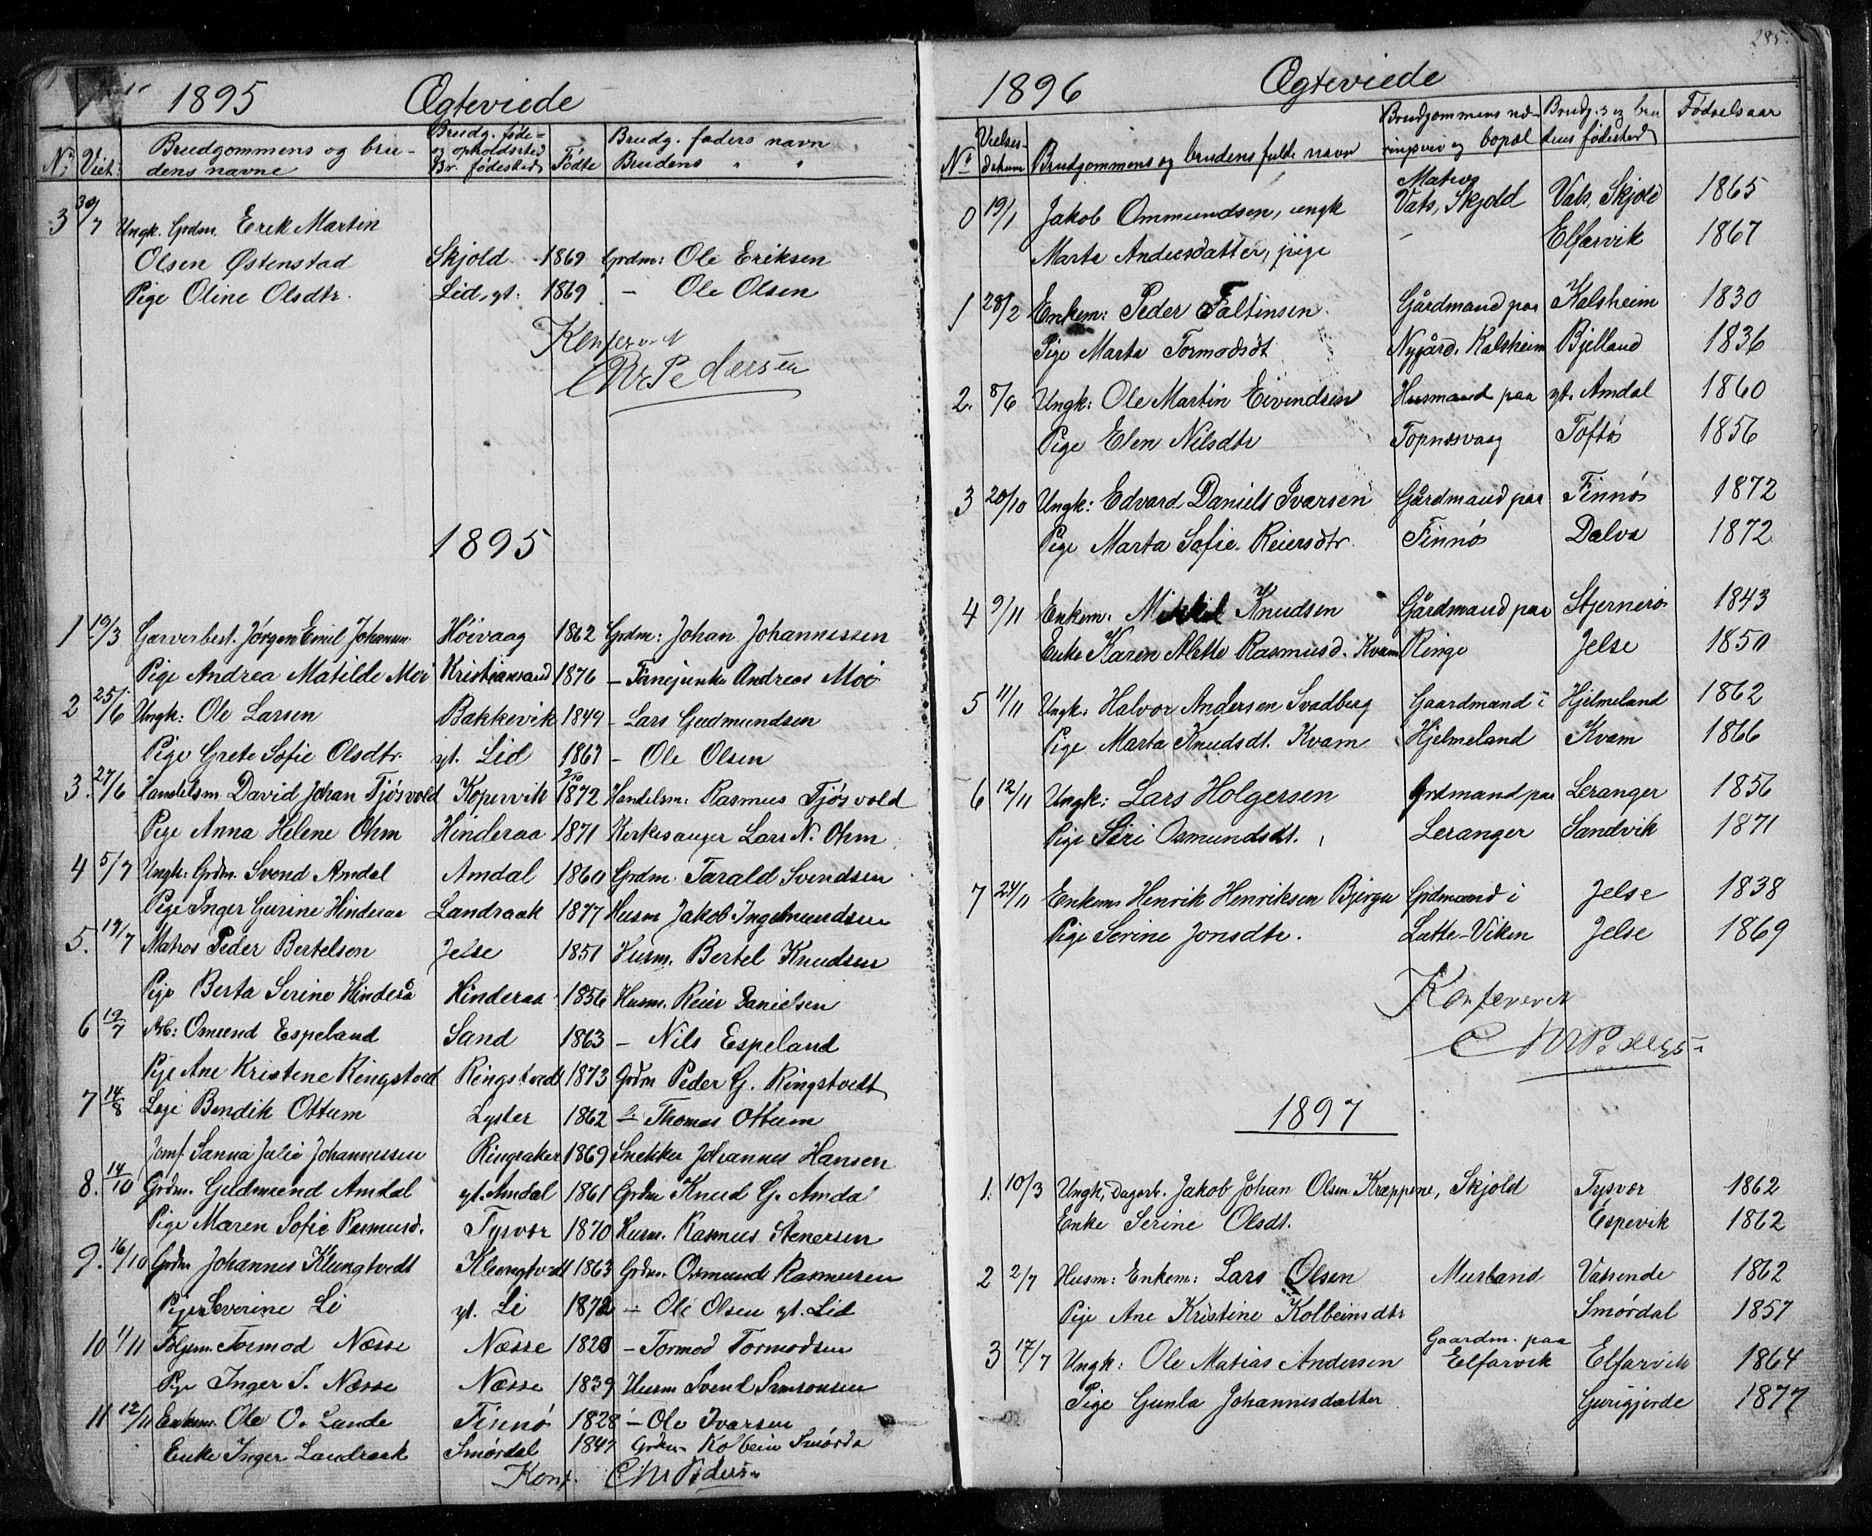 1895 Ægteviede
No Viet: Brudgommens og bru- Brudg. føde- Fødte Brudg. faders navn
dens navne og opholdssted Brudens " "
Br. fødested
3 30/7 Ungk. Grdm. Erik Martin
Olsen Østenstad Skjold 1869 Grdm: Ole Eriksen
Pige Oline Olsdtr. Lid, yt. 1869 — Ole Olsen
Konfereret
Chr Pedersen
1895
1 19/3 Garverbest. Jørgen Emil Johansen Høivaag 1862 Grdm: Johan Johannessen
Pige Andrea Matilde Moi Kristiansand 1876 — Fanejunker Andreas Moi
2 25/6 Ungk: Ole Larsen Bakkevik 1849 — Lars Gudmundsen
Pige Grete Sofie Olsdtr. yt. Lid 1869 — Ole Olsen
3. 27/6 Handelsm. David Johan Tjøsvold Kopervik 1872 Handelsm: Rasmus Tjøsvold
Pige Anna Helene Ohm Hinderaa 1871 Kirkesanger Lars N. Ohm
4 5/7 Ungk: Grdm. Svend Amdal Amdal 1860 Grdm. Tarald Svendsen
Pige Inger Gurine Hinderaa Landraak 1877 Husm Jakob Ingelmundsen
5. 19/7 Matros Peder Bertelsen Jelse 1851 Husm. Bertel Knudsen
Pige Berta Serine Hinderå Hinderaa 1856 Husm. Reier Danielsen
6 19/7 Arb: Omund Espeland Sand 1863 — Nils Espeland
Pige Ane Kristine Ringstvedt Ringstvedt 1873 Grdm Peder G. Ringstvedt
7 14/8 Bendik Ottum Lyster 1862 — Thomas Ottum
Jomf. Sanna Julie Johannessen Ringsaker 1869 Snekker Johannes Hansen
8. 14/10 Grdm. Gudmund Amdal yt. Amdal 1861 Grdm Knud G. Amdal
Pige Maren Sofie Rasmusd. Tysvær 1870 Husm. Rasmus Stenersen
9. 16/10 Grdm Johannes Klungtvedt Klungtvedt 1863 Grdm. Osmund Rasmusen
Pige Severine Li yt. Li 1872 — Ole Olsen yt. Lid
10 1/11 Folgem. Tormod Næsse Næsse 1828 — Tormod Tormodsen
Pige Inger S. Næsse Næsse 1839 Husm Svend Simonsen
11 12/11 Enkem. Ole O. Lande Finnø 1828 — Ole Ivarsen
Enke Inger Landraak Smørdal 1847 Grdm. Kolbein Smørda
Konf. Chr Pedersen
285.
1896 Ægteviede
No Vielses- datum Brudgommens og brudens fulde navn Brudgommens næ- ringsvei og bopæl Brudg:s og bru dens fødested Fødselsaar
0 19/1 Jakob Ommundsen, ungk Matros Vats, Skjold Vats, Skjold 1865
Marta Andersdatter, pige — Elfarvik 1867
1 28/2 Enkem: Peder Faltinsen Gårdmand paa Kalsheim 1830
Pige Marta Tormodsdt Nygård, Kalsheim Bjelland 1836
2. 8/6 Ungk: Ole Martin Eivindsen Husmand paa yt. Amdal 1860
Pige Elen Nilsdtr Topnæsvaag Toftø 1856
3 20/10 Ungk: Edvard Daniels Ivarsen Gårdmand paa Finnø 1872
Pige Marta Sofie Reiersdtr. Finnø Dalva 1872
4 9/11 Enkem. Mikkel Knudsen Gårdmand paa Stjernerø 1843
Enke Karen Alette Rasmusd. Kvam Ringe Jelse 1850
5 11/11 Ungk: Halvor Andersen Svadberg Gaardmand i Hjelmeland 1862
Pige Marta Knudsdt. Kvam Hjelmeland Kvam 1866
6 12/11 Ungk: Lars Holgersen Grdmand paa Leranger 1856
Pige Siri Osmundsdt. Leranger Sandvik 1871
7 24/11 Enkem Henrik Henriksen Bjerga Grdmand i Jelse 1838
Pige Serine Jonsdtr. Lutte-Viken Jelse 1869
Konfereret
Chr Pedersen
1897
1. 10/3 Ungk, Dagarb. Jakob Johan Olsen Kræppene, Skjold Tysvær 1862
Enke Serine Olsdt. Espevik 1862
2 2/7 Husm: Enkem: Lars Olsen Musland Vatsende 1862
Pige Ane Kristine Kolbeinsdtr Smørdal 1857
3 17/7 Ungk: Ole Matias Andersen Gaardm. paa Elfarvik Elfarvik 1864
Pige Gunla Johannesdatter Gurigjerde 1877